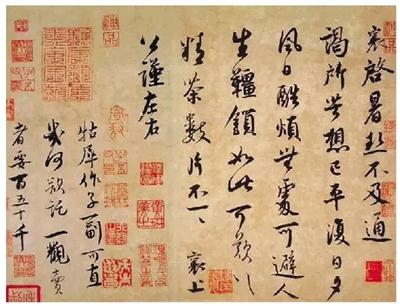 襄啓暑熱不及通
謁所苦想已平復日夕
風日酷煩無處可避人
生韁鎖如此可歎〻
精茶數片不一〻襄上
公謹左右
牯犀作子一副可直
幾何欲託一觀賣
者要百五十千